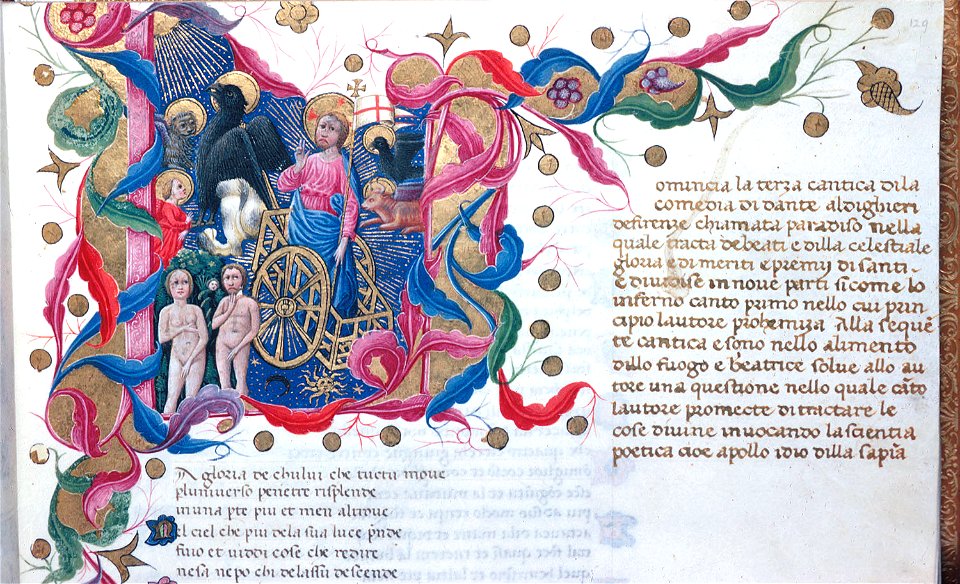 129
omincia la terza cantica dila
comedia di dante aldighieri
defirenze chiamata paradiso nella
quale tracta debeati e dilla celestiale
gloria e di meriti e premij di santi·
E diuidese in noue parti si come lo
inferno canto primo nello cui prin
cipio lautore prohemiza Alla sequẽ
te cantica e sono nello alimento
dillo fuogo e beatrice solue allo au
tore una questione nello quale cãto
lautore promecte di tractare le
cose diuine inuocando la scientia
poetica cioe apollo idio dilla sapia
A gloria de chului che tucti moue
pluniuerso penetre risplende
in una pte piu et men altroue
Nel ciel che piu dela sua luce pnde
fuio et viddi cose che redire
nesa nepo chi delassu descende